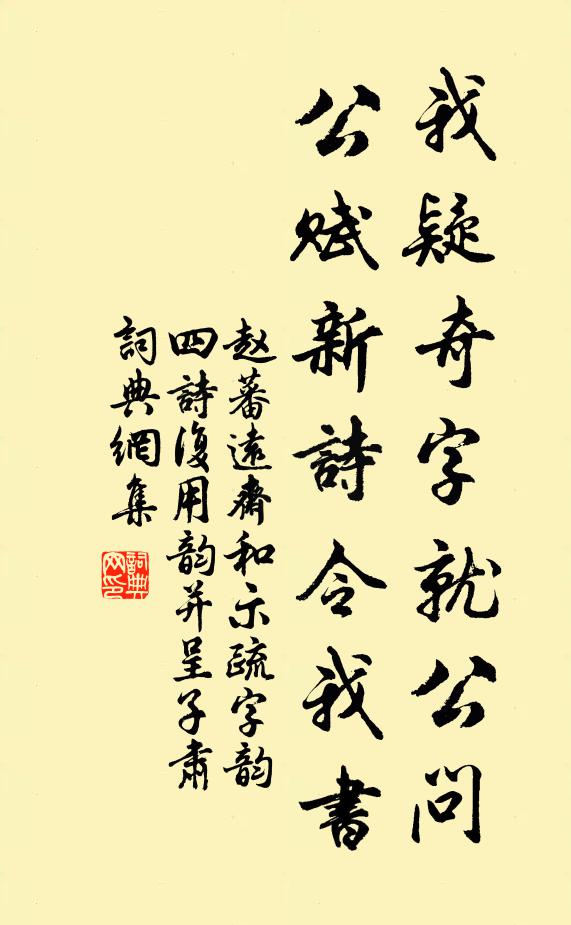 我疑奇字就公問
公賦新詩令我書
赵蕃遠齋和示疏字韵
四詩復用韵并呈子肅
詞典網集
詞典
网印